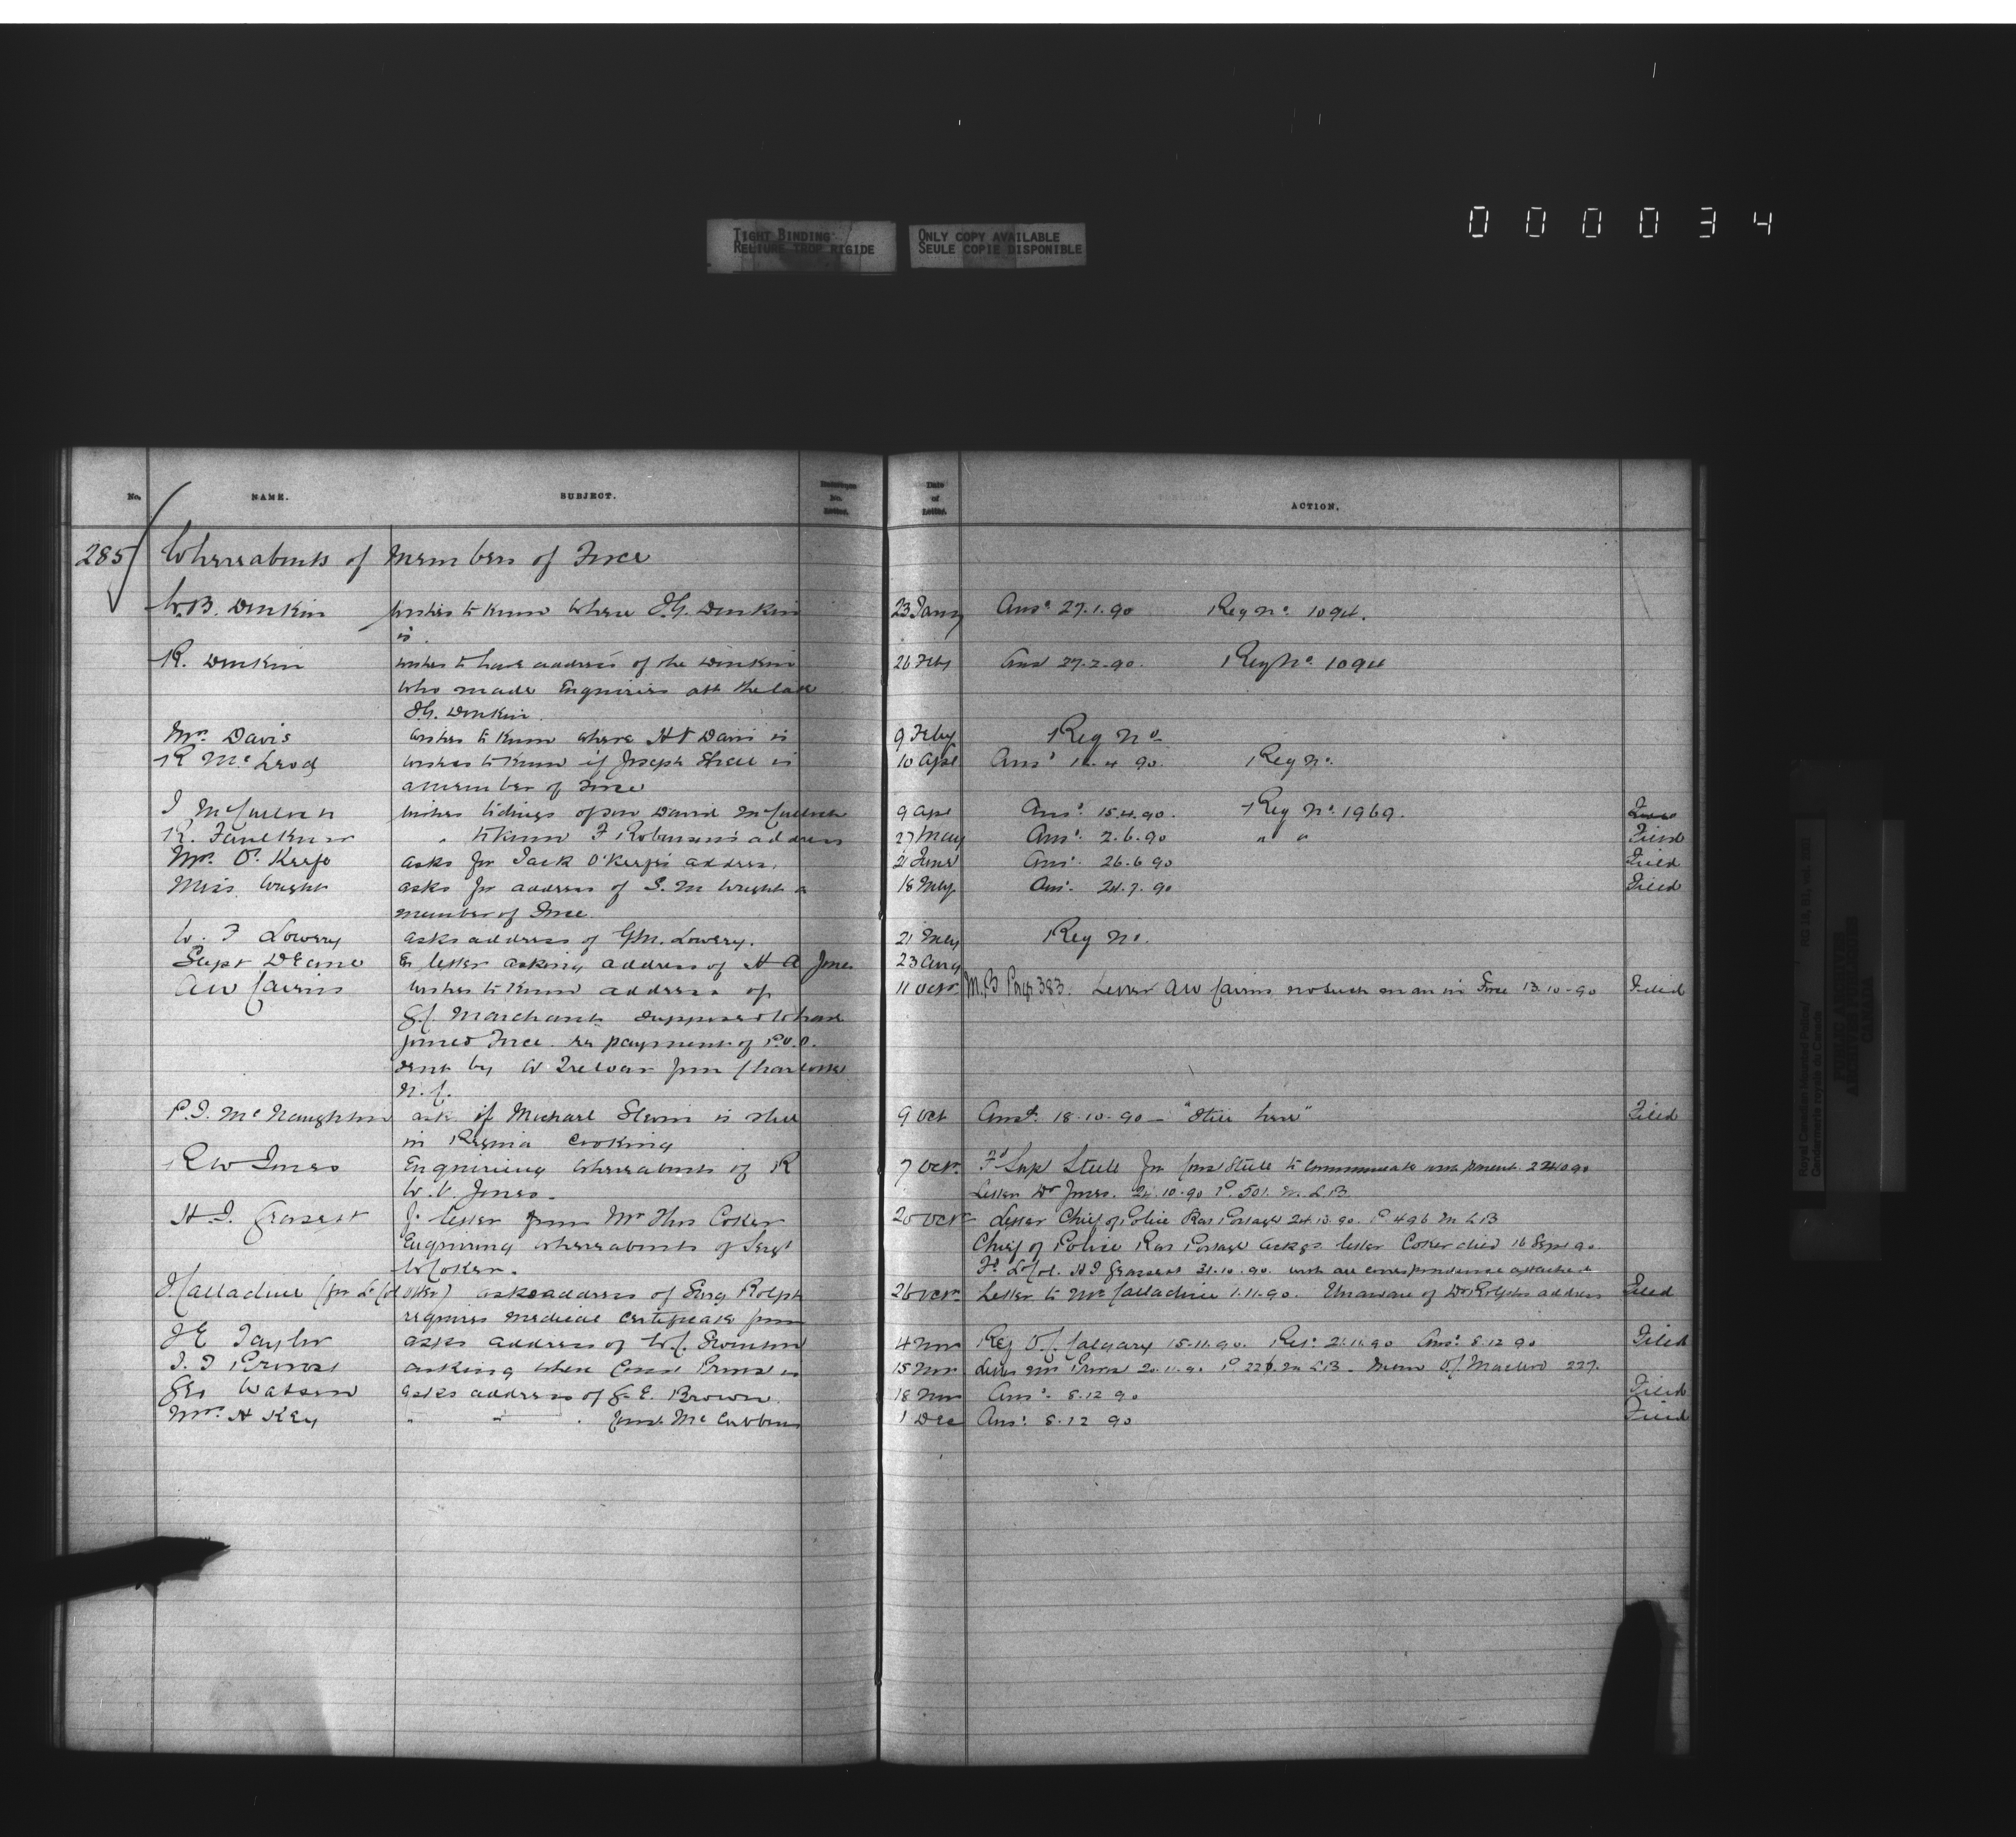 000034
TIGHT BINDING
RELIURE TROP RIGIDE
ONLY COPY AVAILABLE
SEULE COPIE DISPONIBLE
No. NAME. SUBJECT. Date of Letter. ACTION.
285 Whereabouts of Members of Force
W.B. Dunkin wishes to know where J.G. Dunkin 23 Jany Ansd 27.1.90 Reg No. 1094.
is.
R. Dunkin wishes to have address of the Dunkin 26 Feby Ansd 27.2.90. Reg No. 1094
who made Enquiries abt the late
J.G. Dunkin.
Mrs. Davis wishes to know where H Davis is 9 Feby Reg No.
R McLeod wishes to know if Joseph is 10 Apl Ansd 90. Reg No.
a member of Force
J McCulloch wishes tidings of son David McCulloch 9 Apl Ansd 15.4.90. Reg No. 1969.
R. Faulkner " to know F Robinson's address 27 May Ansd. 2.6.90 " " Filed
Mrs. O'Keefe asks for Jack O'Keefe's address. 21 June Ansd. 26.6.90 Filed
Miss Wright asks for address of S.M Wright a 18 July Ansd. 24.7.90 Filed
member of Force.
W. F Lowery asks address of G.M. Lowery. 21 July Reg No.
Supt Deane letter asking address of H A Jones 23 Aug
A W Cairns wishes to know address of 11 Octr M.B Page 383. Letter A W Cairns no such man in Force 13.10.90 Filed
Marchant supposed to have
joined Force re payment of P.O.O.
sent by W Trelear from Charlotte
N.C.
P.J. McNaughton ask if Michael Slevin is still 9 Oct Ansd. 18.10.90 — "Still here" Filed
in Regina Cooking
R W Jones Enquiring whereabouts of R 7 Octr. Fd Supt Steele for Const Steele to communicate with parent.
W.V. Jones. Letter Dr Jones. 24.10.90 P. 501. M.L.B.
H.J. Grasett letter from Mr Thos Coker 20 Octr Letter Chief of Police Rat Portage 24.10.90. P 496 M L B
Enquiring whereabouts of Sergt Chief of Police Rat Portage ackgs letter Coker died 16 Sept 90.
W Coker. Fd Lt Col. H J Grasett 31.10.90. with all correspondence attached
J Calladine (for Lt Col Otter) asks address of Surg Rolph 26 Octr Letter to Mr Calladine 1.11.90. Unaware of Dr Rolphs address Filed
requires medical Certificate from
J E Taylor asks address of W.C. 4 Nov Ref O.C. Calgary 15.11.90. Ret. 21.11.90 Ansd. 8.12.90 Filed
Provost asking where Const Provost is 15 Nov Letter Provost 20.11.90 P Memo O.C. Macleod 227.
Geo Watson asks address of G.E. Brown. 18 Nov Ansd. 8.12.90 Filed
Mrs. H Key " " " Jno. McCubbin 1 Dec Ansd. 8.12.90 Filed
Royal Canadian Mounted Police/
Gendarmerie royale du Canada
PUBLIC ARCHIVES
ARCHIVES PUBLIQUES
CANADA